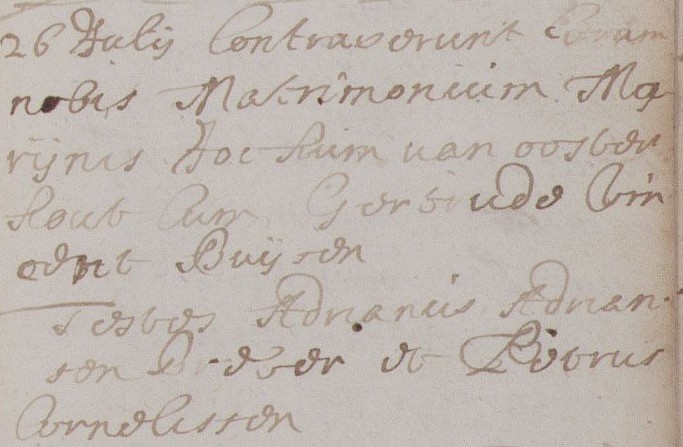 26 Julij Contraxerunt Coram
nobis Matrimonium Ma
rijnis Jochum van ooster
hout Cum Gertrude Vin
cent Buijsen
Testes Adrianus Adrian
sen et Petrus
Cornelissen